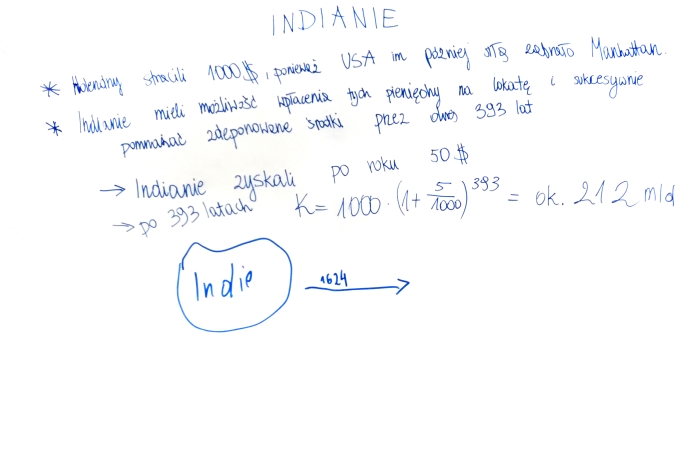 INDIANIE
* Holendrzy stracili 1000$, ponieważ USA im później zabrało Manhattan.
* Indianie mieli możliwość wpłacenia tych pieniędzy na lokatę i sukcesywnie
pomnażać zdeponowane środki przez okres 393 lat
→ Indianie zyskali po roku 50 $
→ po 393 latach K = 1000 · (1 + 5/1000)^393 = ok. 212 mld
Indie 1624 →